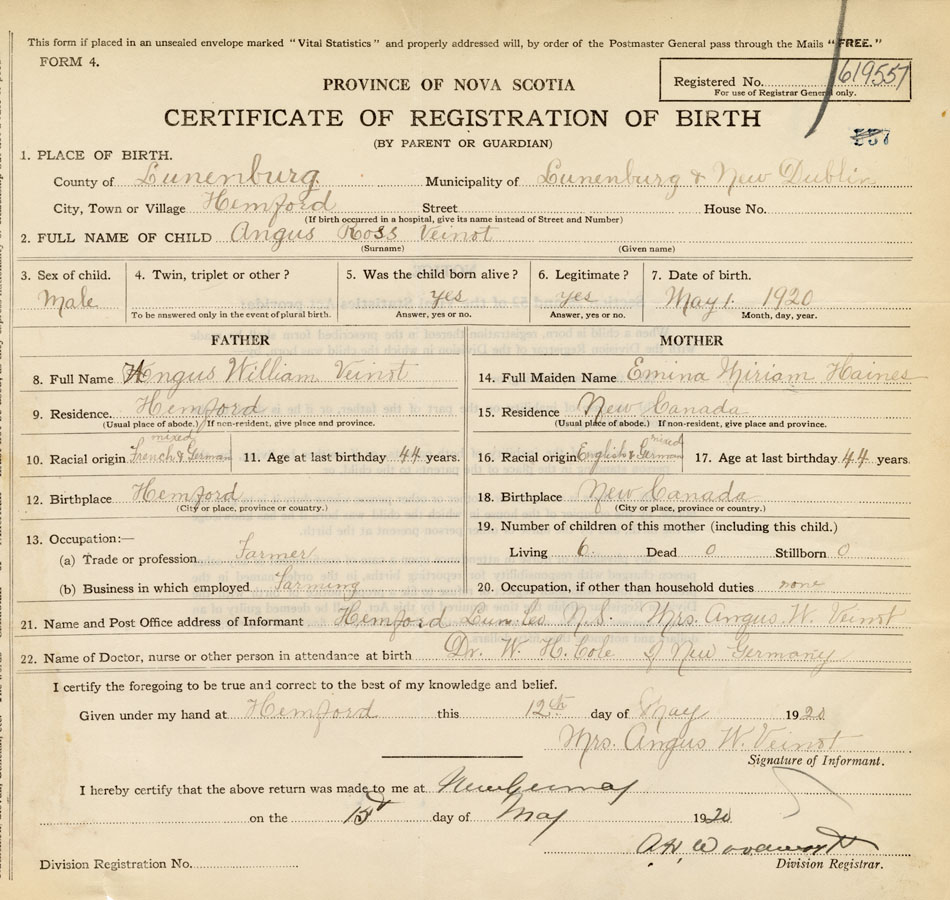 This form if placed in an unsealed envelope marked "Vital Statistics" and properly addressed will, by order of the Postmaster General pass through the Mails "FREE."
FORM 4.
Registered No. 619557
For use of Registrar General only.
PROVINCE OF NOVA SCOTIA
CERTIFICATE OF REGISTRATION OF BIRTH
(BY PARENT OR GUARDIAN)
1. PLACE OF BIRTH.
County of Lunenburg Municipality of Lunenburg & New Dublin
City, Town or Village Hemford Street House No.
(If birth occurred in a hospital, give its name instead of Street and Number)
2. FULL NAME OF CHILD Angus Ross Veinot
(Surname) (Given name)
3. Sex of child. 4. Twin, triplet or other? 5. Was the child born alive? 6. Legitimate? 7. Date of birth.
Male yes yes May 1. 1920
To be answered only in the event of plural birth. Answer, yes or no. Answer, yes or no. Month, day, year.
FATHER MOTHER
8. Full Name Angus William Veinot 14. Full Maiden Name Miriam Haines
9. Residence. Hemford 15. Residence New Canada
(Usual place of abode.) If non-resident, give place and province. (Usual place of abode.) If non-resident, give place and province.
mixed mixed
10. Racial origin French & German 11. Age at last birthday 44 years. 16. Racial origin English & German 17. Age at last birthday 44 years.
12. Birthplace Hemford 18. Birthplace New Canada
(City or place, province or country.) (City or place, province or country.)
13. Occupation:— 19. Number of children of this mother (including this child.)
(a) Trade or profession Farmer Living 6 Dead 0 Stillborn 0
(b) Business in which employed Farming 20. Occupation, if other than household duties none
21. Name and Post Office address of Informant Hemford Lun. Co N.S. Mrs. Angus W. Veinot
22. Name of Doctor, nurse or other person in attendance at birth Dr. W. H. Cole New Germany
I certify the foregoing to be true and correct to the best of my knowledge and belief.
Given under my hand at Hemford this 12th day of May 1920
Mrs. Angus W. Veinot
Signature of Informant.
I hereby certify that the above return was made to me at New Germany
on the 15 day of May 1920
Division Registration No. Division Registrar.